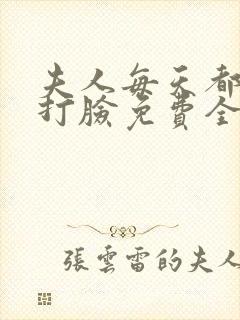 夫人每天都
打臉免費全
張雲雷的夫人